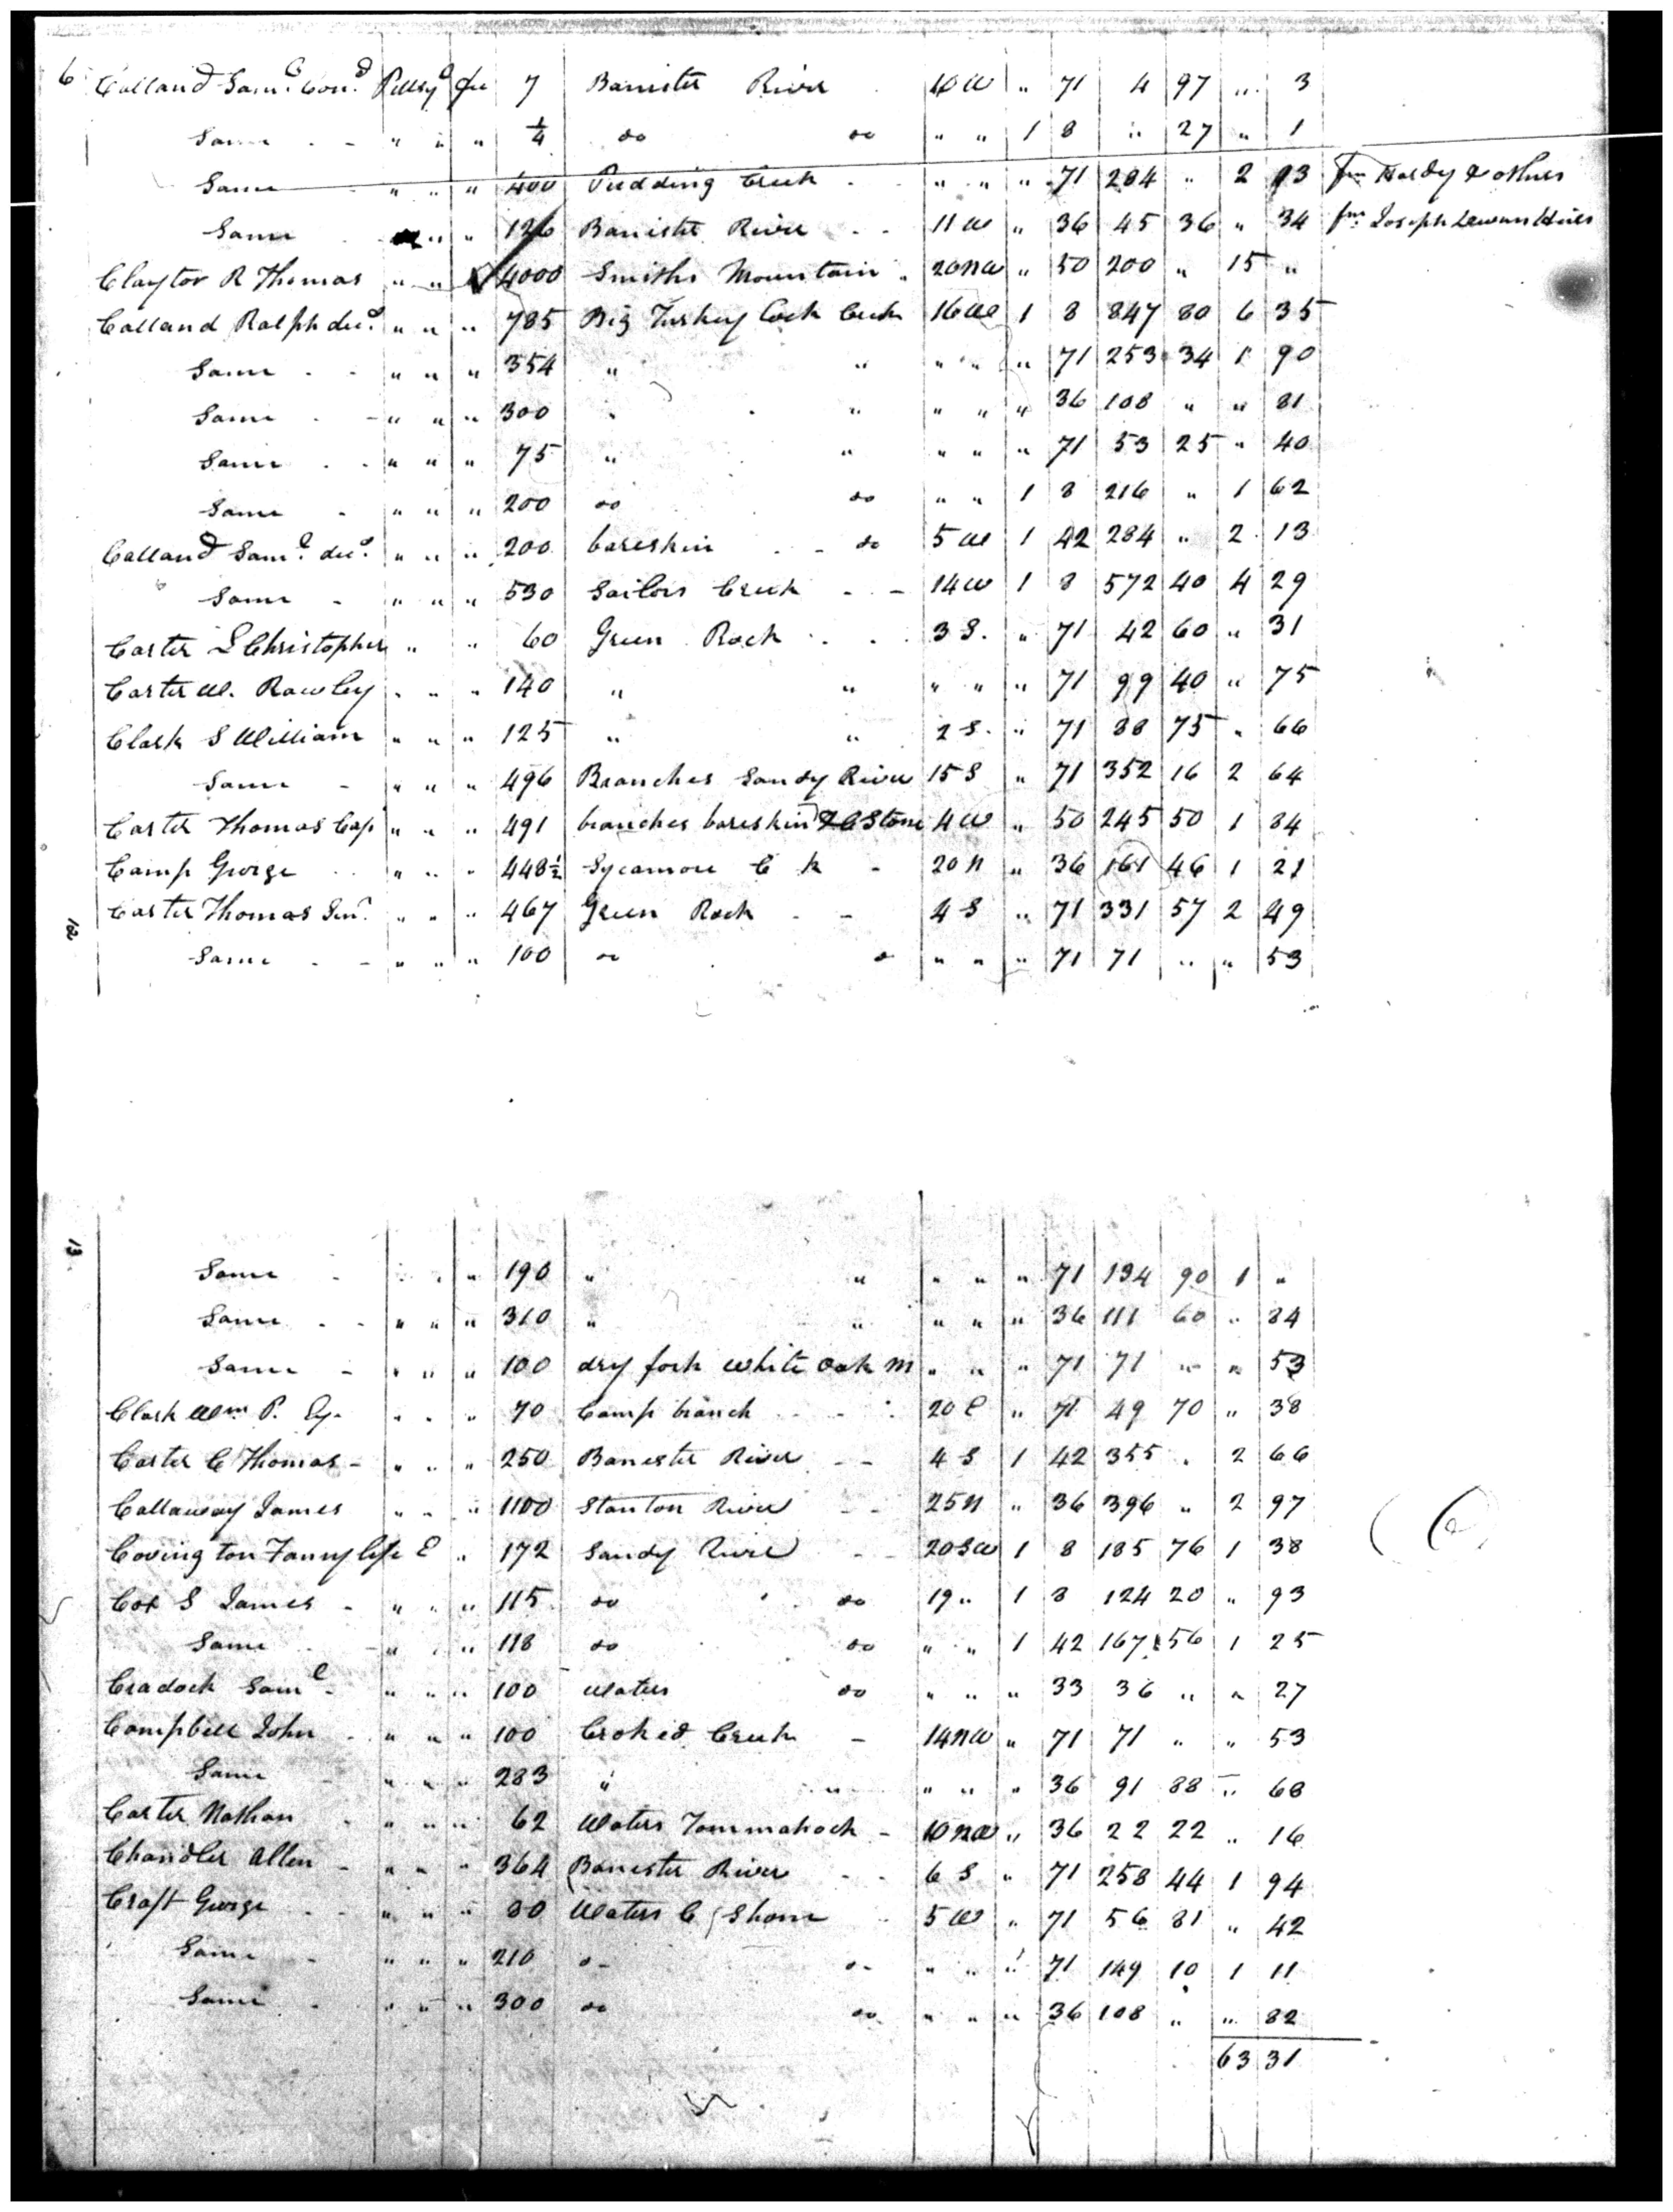 6 Calland Saml Cont Pittsy fee 7 Banister River 10 W " 71 4 97 " 3
Same " " " 1/4 do do " " 1 8 " 27 " 1
Same " " " 400 Pudding Creek " " " 71 284 " 2 13 fm Hardy & others
Same " " " 126 Banister River 11 W " 36 45 36 " 34 fm Joseph
Claytor R Thomas " " 4000 Smiths Mountain 20 NW " 50 200 " 15 "
Calland Ralph decd " " " 785 Big Turkey Cock Creek 16 W 1 8 847 80 6 35
Same " " " 354 " " " " " 71 253 34 1 90
Same " " " 300 " " " " " 36 108 " " 81
Same " " " 75 " " " " " 71 53 25 " 40
Same " " " 200 do do " " 1 8 216 " 1 62
Calland Saml decd " " " 200 bareskin do 5 W 1 42 284 " 2 13
Same " " " 530 Sailors Creek 14 W 1 8 572 40 4 29
Carter L Christopher " " 60 Green Rock 3 S. " 71 42 60 " 31
Carter W. Rawley " " " 140 " " " " " 71 99 40 " 75
Clark S William " " " 125 " " 2 S. " 71 88 75 " 66
Same " " " 496 Branches Sandy River 15 S " 71 352 16 2 64
Carter Thomas Cap " " " 491 branches bareskin & C Stone 4 W " 50 245 50 1 84
Camp George " " " 448½ Sycamore C k 20 N " 36 161 46 1 21
Carter Thomas Senr " " " 467 Green Rock 4 S " 71 331 57 2 49
12
Same " " " 100 do do " " " 71 71 " " 53
13
Same " " " 190 " " " " " 71 134 90 1 "
Same " " " 310 " " " " " 36 111 60 " 84
Same " " " 100 dry fork white oak m " " " 71 71 " " 53
Clark Wm P. " " " 70 Camp branch 20 E " 71 49 70 " 38
Carter C Thomas " " " 250 Banester River 4 S 1 42 355 " 2 66
Callaway James " " " 1100 Stanton River 25 N " 36 396 " 2 97
Covington Fanny life E " 172 Sandy River 20 SW 1 8 185 76 1 38 (6)
Cox S James " " " 115 do do 19 " 1 8 124 20 " 93
Same " " " 118 do do " " 1 42 167 56 1 25
Cradock Saml " " " 100 Waters do " " " 33 36 " " 27
Campbell John " " " 100 Croked Creek 14 NW " 71 71 " " 53
Same " " " 283 " " " " " 36 91 88 " 68
Carter Nathan " " " 62 Waters Tommahock 10 NW " 36 22 22 " 16
Chandler Allen " " " 364 Banester River 6 S " 71 258 44 1 94
Craft George " " " 80 Waters C Stone 5 W " 71 56 81 " 42
Same " " " 210 do do " " " 71 149 10 1 11
Same " " " 300 do do " " " 36 108 " " 82
63 31